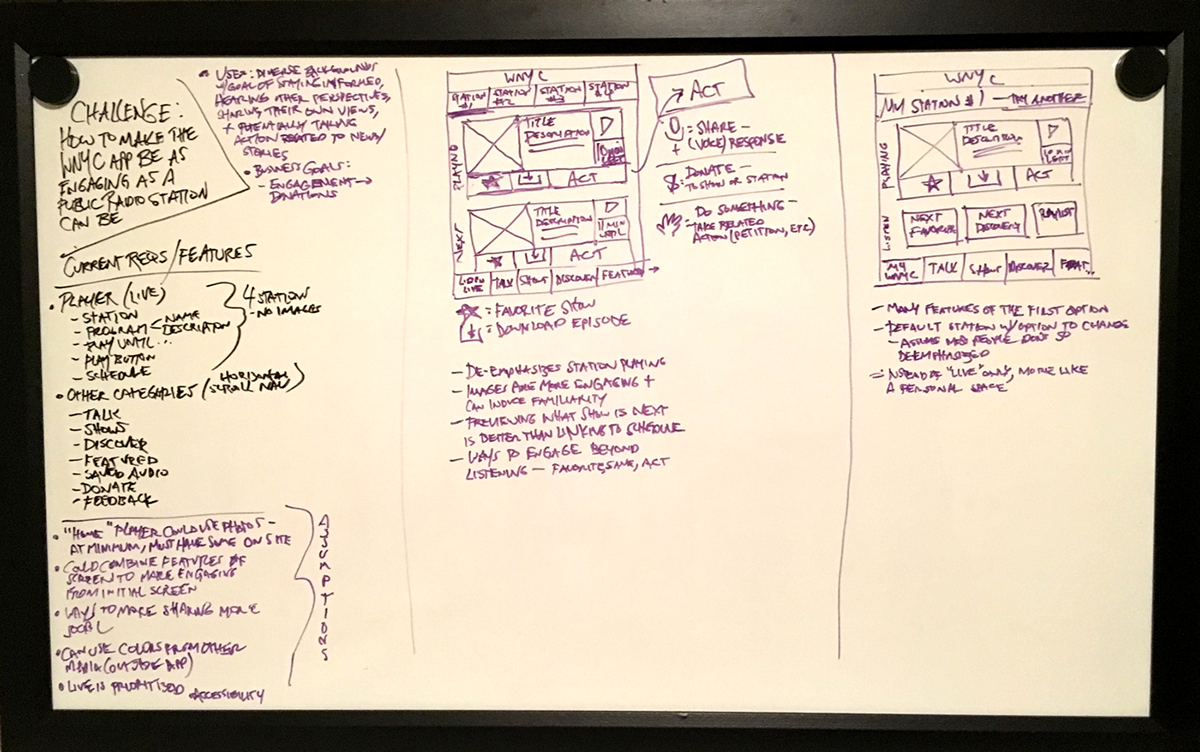 CHALLENGE:
HOW TO MAKE THE
WNYC APP BE AS
ENGAGING AS A
PUBLIC RADIO STATION
CAN BE
• USER: DIVERSE BACKGROUNDS
W/GOAL OF STAYING INFORMED,
HEARING OTHER PERSPECTIVES,
SHARING THEIR OWN VIEWS,
+ POTENTIALLY TAKING
ACTION RELATED TO NEWS/
STORIES
• BUSINESS GOALS:
- ENGAGEMENT →
DONATIONS
CURRENT REQS/FEATURES
• PLAYER (LIVE)
- STATION
- PROGRAM - NAME
DESCRIPTION
- PLAY UNTIL...
- PLAY BUTTON
- SCHEDULE
4 STATION
- NO IMAGES
• OTHER CATEGORIES (HORIZONTAL
SCROLL NAV)
- TALK
- SHOWS
- DISCOVER
- FEATURED
- SAVED AUDIO
- DONATE
- FEEDBACK
• "HOME" PLAYER COULD USE PHOTOS -
AT MINIMUM, MUST HAVE SOME ON SITE
• COULD COMBINE FEATURES OF
SCREEN TO MAKE ENGAGING
FROM INITIAL SCREEN
• WAYS TO MORE SHARING MORE
• CAN USE COLORS FROM OTHER
MEDIA (OUTSIDE APP)
• LIVE IS PRIORITISED
• ACCESSIBILITY
ASSUMPTIONS
WNYC
STATION #1
STATION #2
STATION #3
STATION
PLAYING
TITLE
DESCRIPTION
LEFT
ACT
NEXT
TITLE
DESCRIPTION
11 MIN
UNTIL
ACT
LIVE
TALK
SHOW
DISCOVER
FEATURED →
★ = FAVORITE SHOW
= DOWNLOAD EPISODE
- DE-EMPHASIZES STATION PLAYING
- IMAGES ARE MORE ENGAGING +
CAN INDUCE FAMILIARITY
- PREVIEWING WHAT SHOW IS NEXT
IS BETTER THAN LINKING TO SCHEDULE
- WAYS TO ENGAGE BEYOND
LISTENING - FAVORITE, SAVE, ACT
ACT
= SHARE -
+ (VOICE) RESPONSE
$ = DONATE -
TO SHOW OR STATION
= DO SOMETHING -
TAKE RELATED
ACTION (PETITION, ETC)
WNYC
MY STATION #1 - TRY ANOTHER
PLAYING
TITLE
DESCRIPTION
10 MIN
LEFT
ACT
LISTEN
NEXT
FAVORITE
NEXT
DISCOVERY
PLAYLIST
MY
WNYC
TALK
SHOW
DISCOVER
FEAT...
- MANY FEATURES OF THE FIRST OPTION
- DEFAULT STATION W/OPTION TO CHANGE
- ASSUME MOST PEOPLE DON'T SO
DEEMPHASIZED
- INSTEAD OF "LIVE" ONLY, MORE LIKE
A PERSONAL SPACE